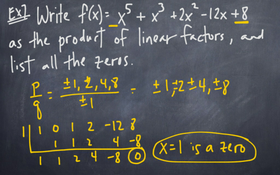 EX) Write f(x) = x⁵ + x³ + 2x² - 12x + 8
as the product of linear factors, and
list all the zeros.
p/q = ±1, 2, 4, 8 / ±1 = ±1, ±2 ±4, ±8
1| 1 0 1 2 -12 8
1 1 2 4 -8
1 1 2 4 -8 0
x=1 is a zero